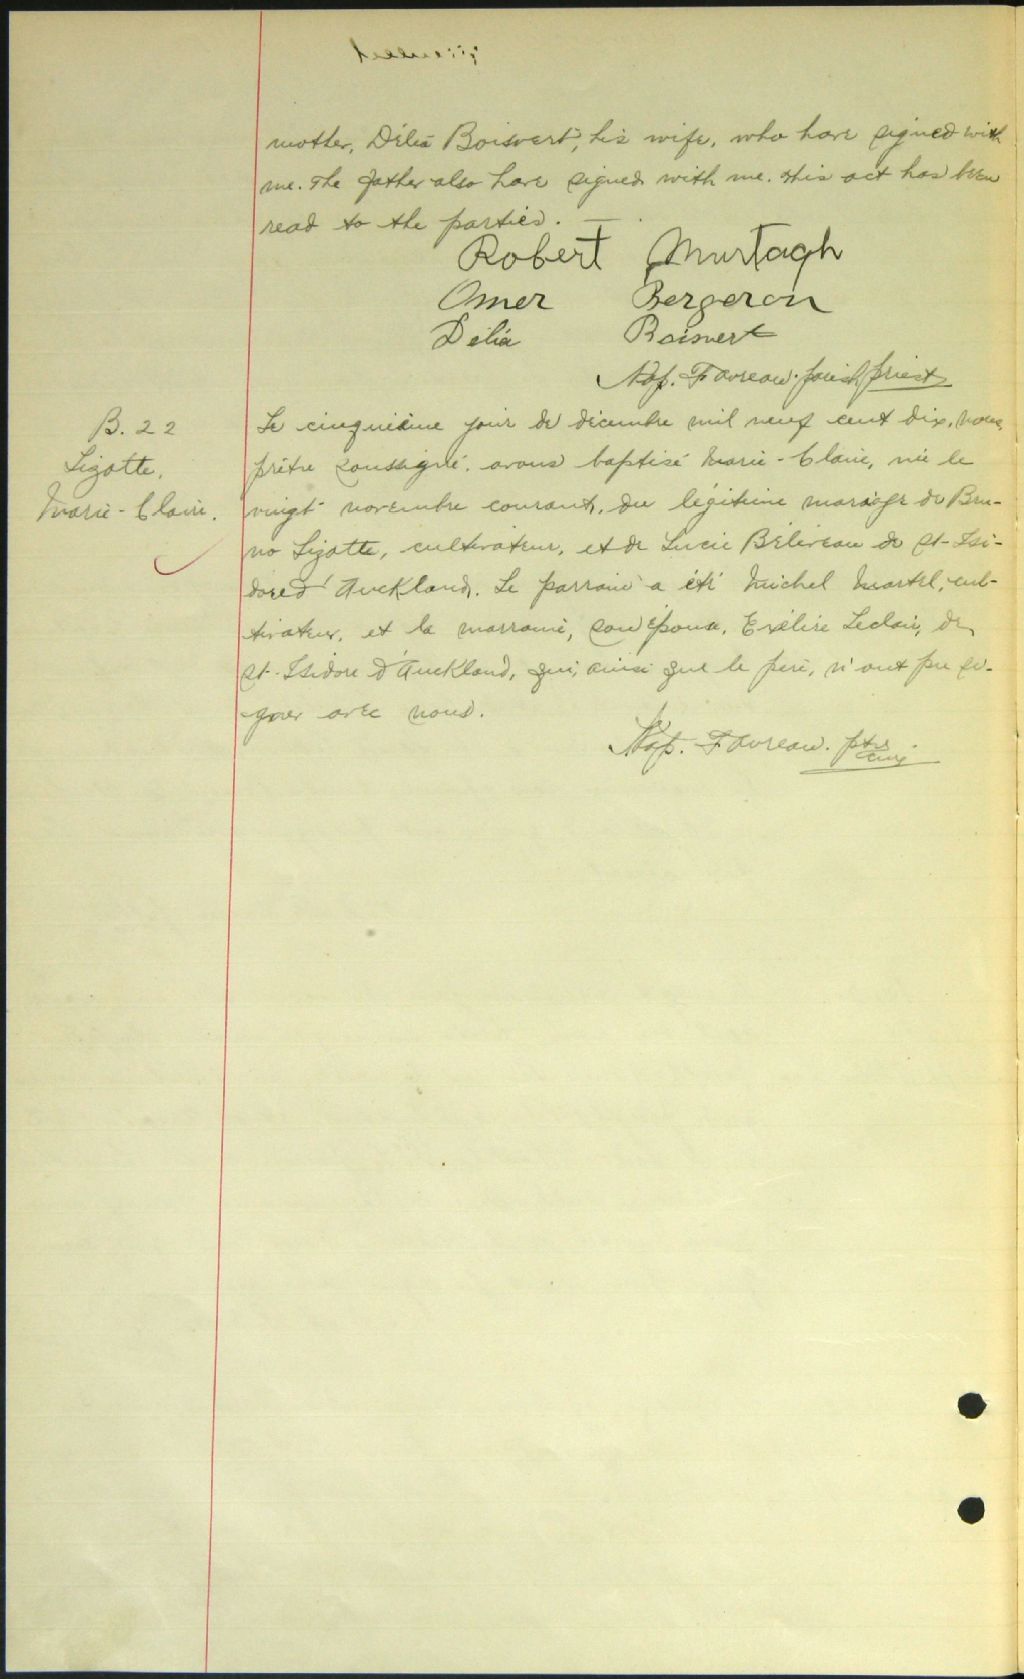 mother, Délia Boisvert, his wife, who have signed with
me. The father also have signed with me. This act has been
read to the parties. —
Robert Murtagh
Omer Bergeron
Délia Boisvert
Nap. Favreau. parish priest
B. 22
Lizotte,
Marie-Claire.
Le cinquième jour de décembre mil neuf cent dix, nous,
prêtre soussigné, avons baptisé Marie-Claire, née le
vingt novembre courant, du légitime mariage de Bru-
no Lizotte, cultivateur, et de Lucie Béliveau de St-Isi-
dore d'Auckland. Le parrain a été Michel Martel, cul-
tivateur, et la marraine, son épouse, Exélire Leclair, de
St-Isidore d'Auckland, qui, ainsi que le père, n'ont pu si-
gner avec nous.
Nap. Favreau. ptre
curé